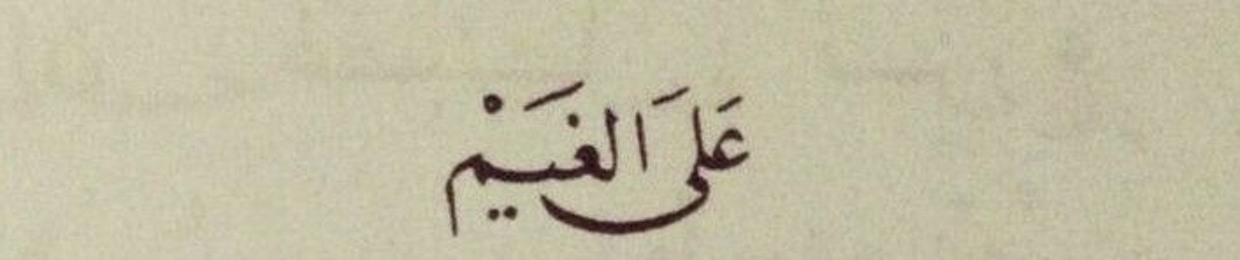 عَلَى الغَيْم